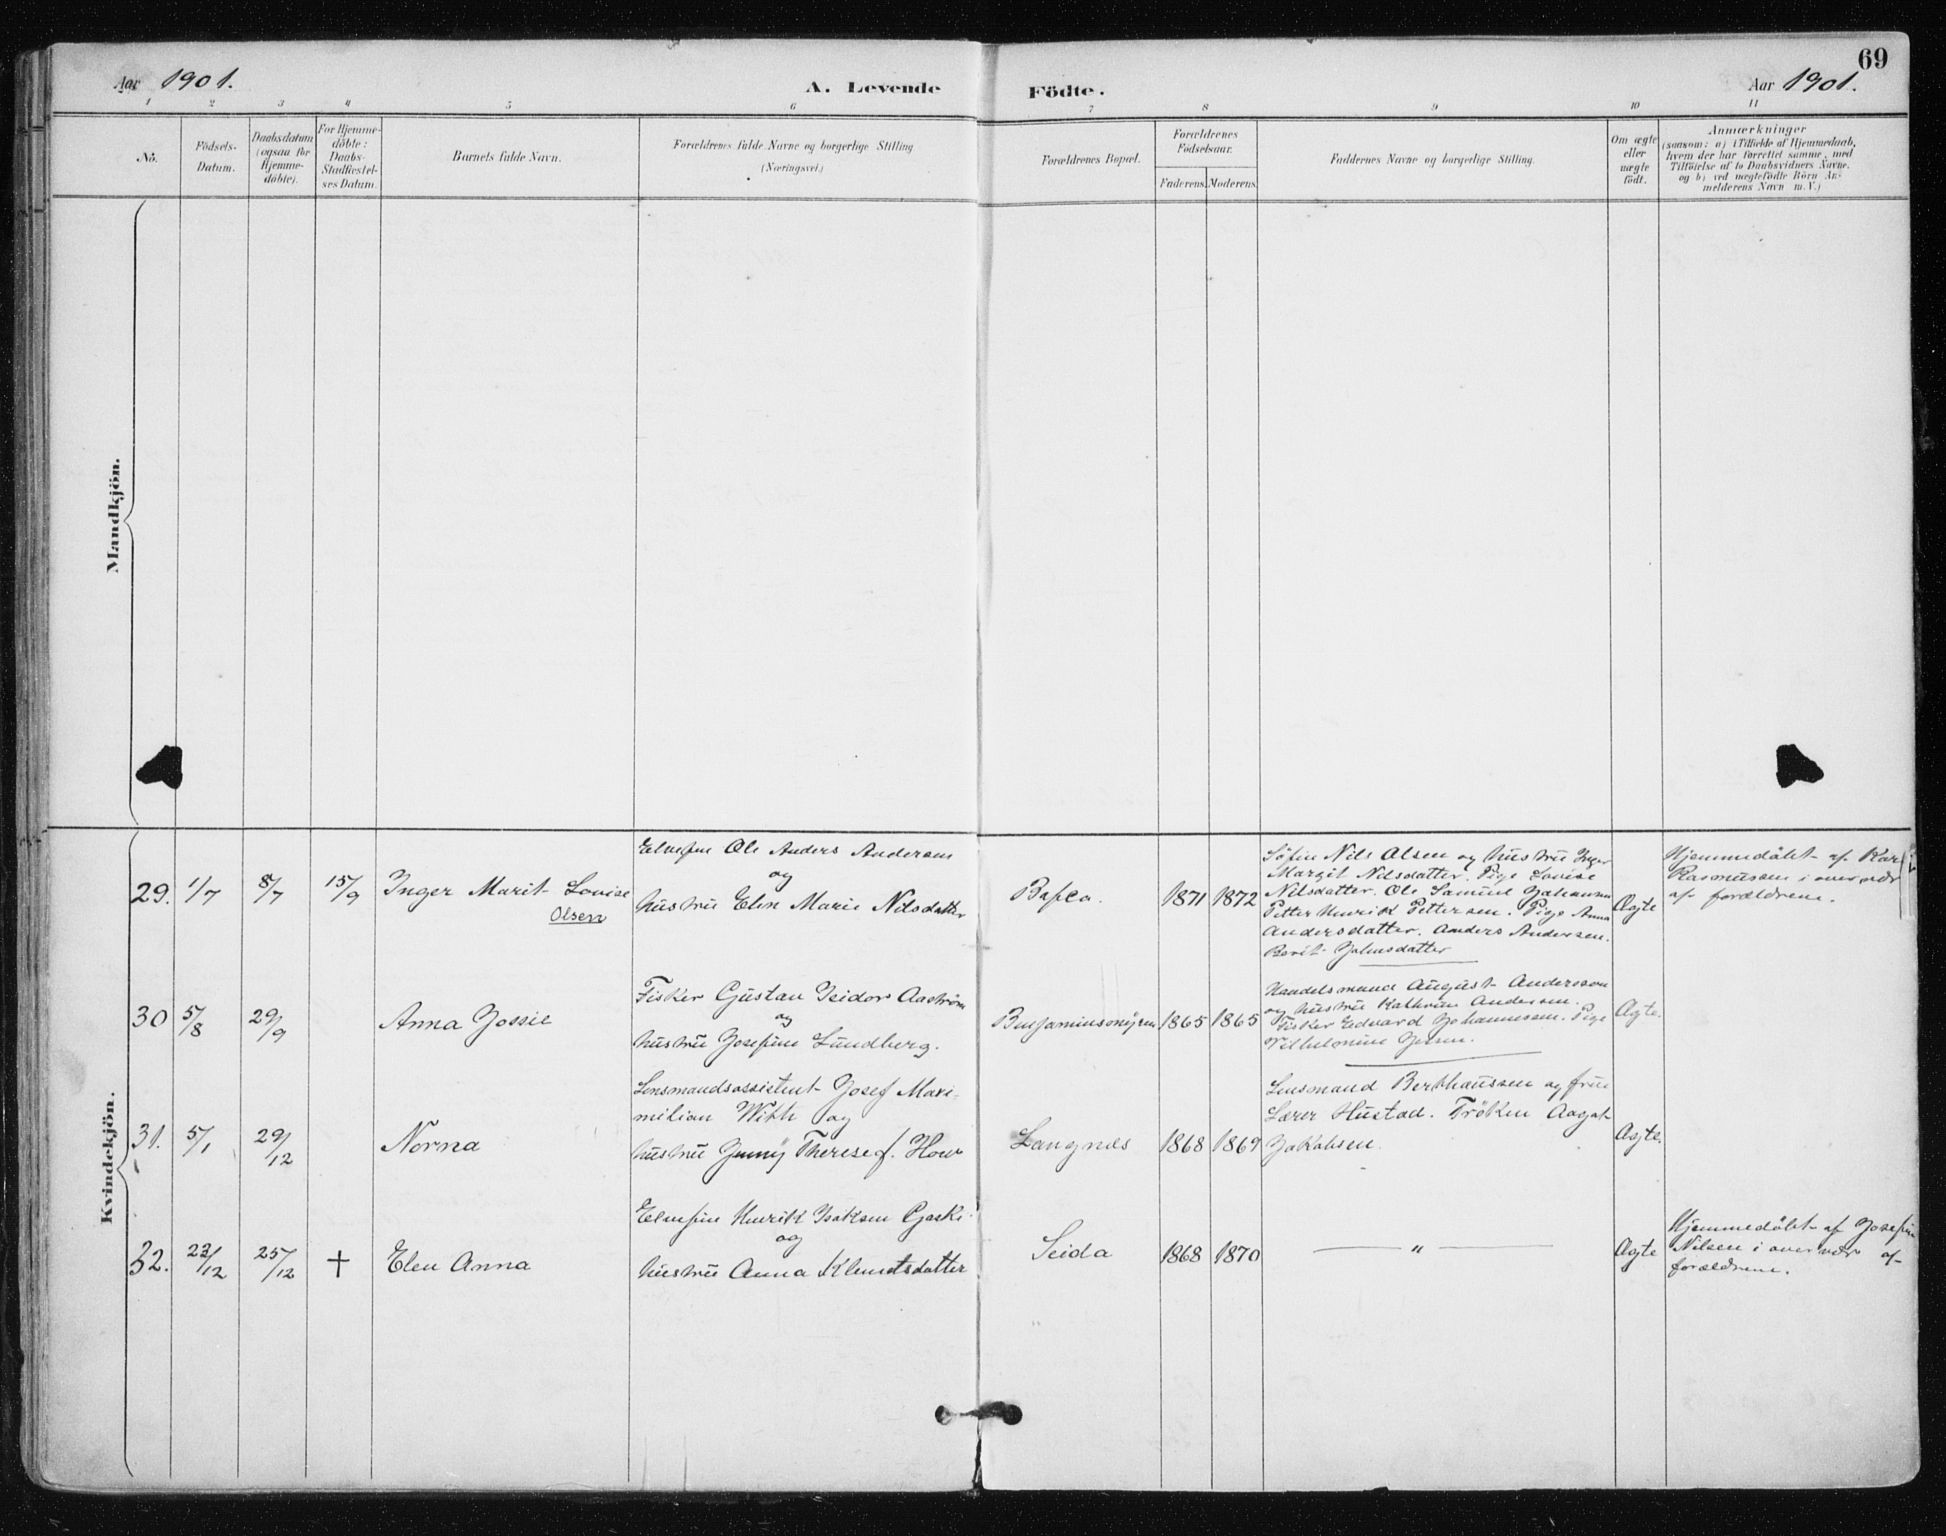 69
Aar 1901.
A. Levende
Födte.
Aar 1901.
1 2 3 4 5 6 7 8 9 10 11
No.
Födsels-
Datum.
Daabsdatum
(ogsaa for
Hjemme-
döbte).
For Hjemme-
döbte:
Daabs-
Stadfæstel-
ses Datum.
Barnets fulde Navn.
Forældrenes fulde Navne og borgerlige Stilling
(Næringsvei.)
Forældrenes Bopæl.
Forældrenes
Födselsaar.
Faderens. Moderens.
Faddernes Navne og borgerlige Stilling.
Om ægte
eller
uægte
födt.
Anmærkninger
(saasom: a) i Tilfælde af Hjemmedaab,
hvem der har forrettet samme, med
Tilföielse af to Daabsvidners Navne,
og b) ved uægtefödte Börn An-
melderens Navn m.V.)
Mandkjön.
Kvindekjön.
29. 1/7 8/7 15/9
Inger Marit Lovise
Olsen
Ole Anders Andersen
og
hustru Elen Marie Nilsdatter
1871 1872
Nils Olsen og hustru Inger
Margit Nilsdatter. Pige Lovise
Nilsdatter. Ole Samuel Johansen
Petter Henrik Pettersen. Pige Anna
Andersdatter. Anders Andersen.
Berit Johnsdatter
Ægte
Hjemmedöbt af
Rasmussen i overvær
af forældrene.
30 5/8 29/9
Anna Jossie
Fisker Gustav Isidor Aaström
og
hustru Josefine Lundberg.
1865 1865
Handelsmand August Andersson
og hustru Kathrine Andersen.
Fisker Edvard Johannessen. Pige
Vilhelmine Jensen.
Ægte.
31. 5/1 29/12
Norna
Lensmandsassistent Josef Maxi-
milian With og
hustru Jenny Therese f. How
Langnes
1868 1869
Lensmand Berthaussen og frue
Lærer Hustad. Fröken Aagat
Jakobsen.
Ægte.
32. 22/12 25/12 †
Elen Anna
Henrik Isaksen
og
hustru Anna Klemetsdatter
Seida
1868 1870
— " —
Ægte
Hjemmedöbt af Josefine
Nilsen i overvær af
forældrene.